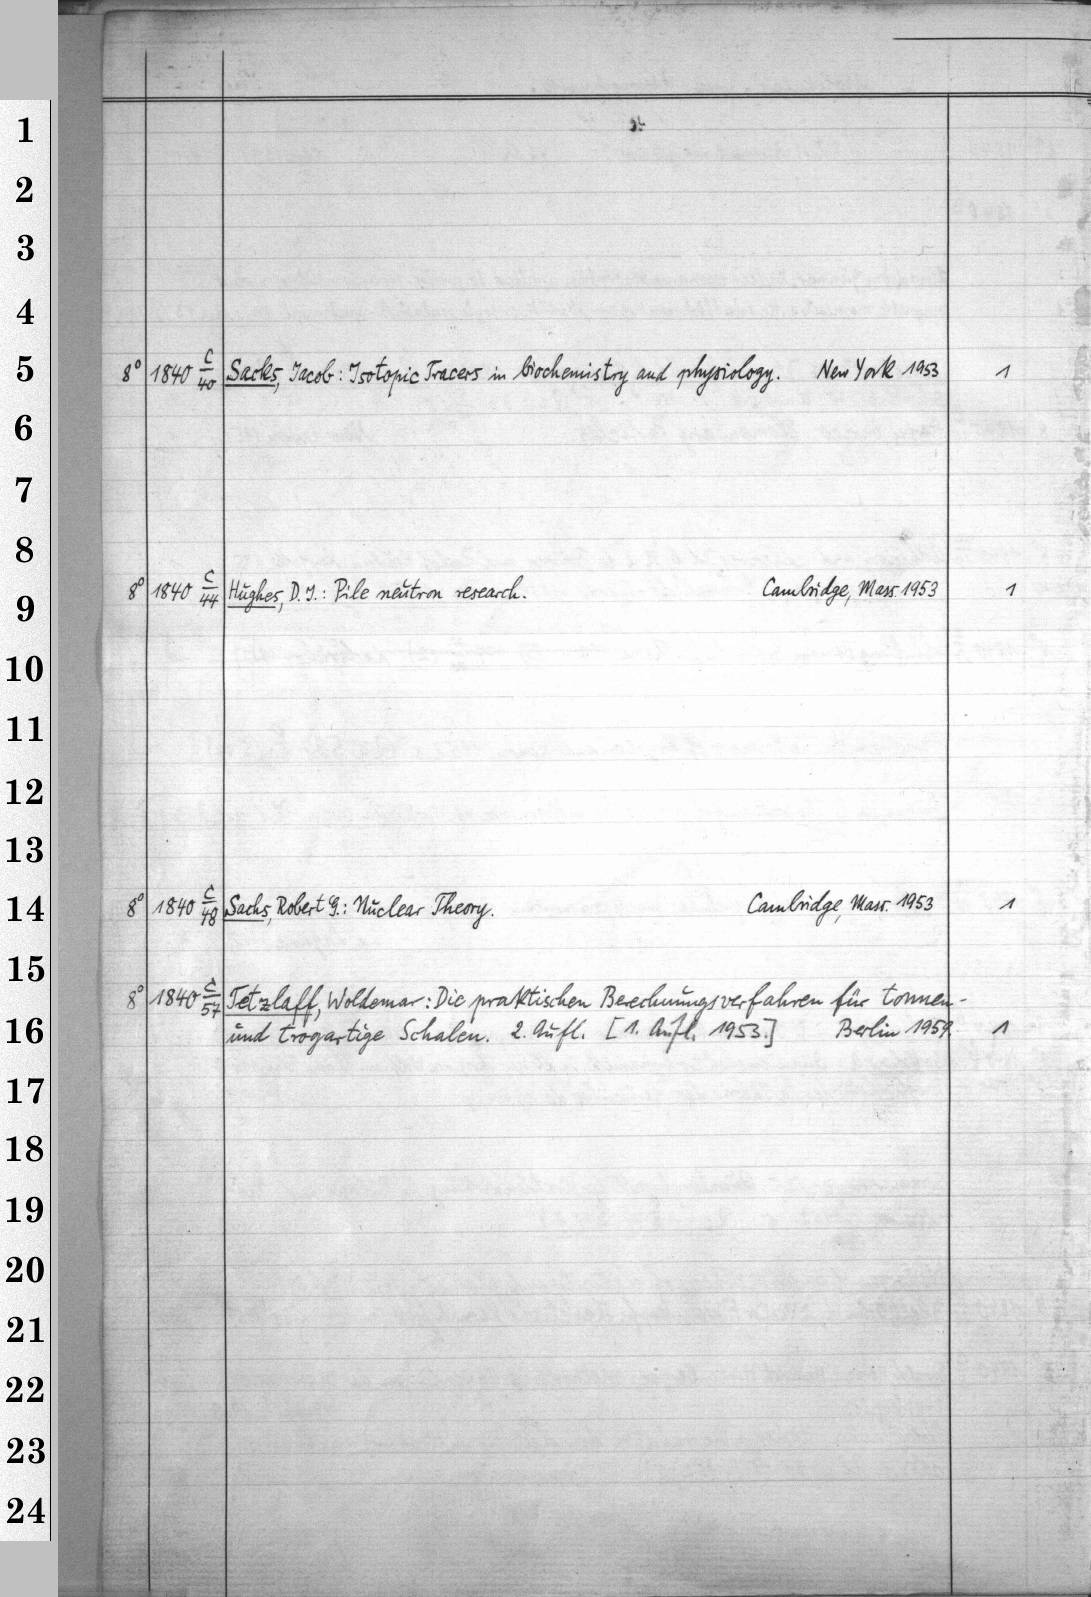 1
2
3
4
5
8° 1840 C/40 Sacks, Jacob: Isotopic Tracers in biochemistry and physiology. New York 1953 1
6
7
8
8° 1840 C/44 Hughes, D. J.: Pile neutron research. Cambridge, Mass. 1953 1
9
10
11
12
13
14
8° 1840 C/48 Sachs, Robert G.: Nuclear Theory. Cambridge, Mass. 1953 1
15
8° 1840 C/57 Tetzlaff, Woldemar: Die praktischen Berechnungsverfahren für tonnen-
16
und trogartige Schalen. 2. Aufl. [1. Aufl. 1953.] Berlin 1959. 1
17
18
19
20
21
22
23
24